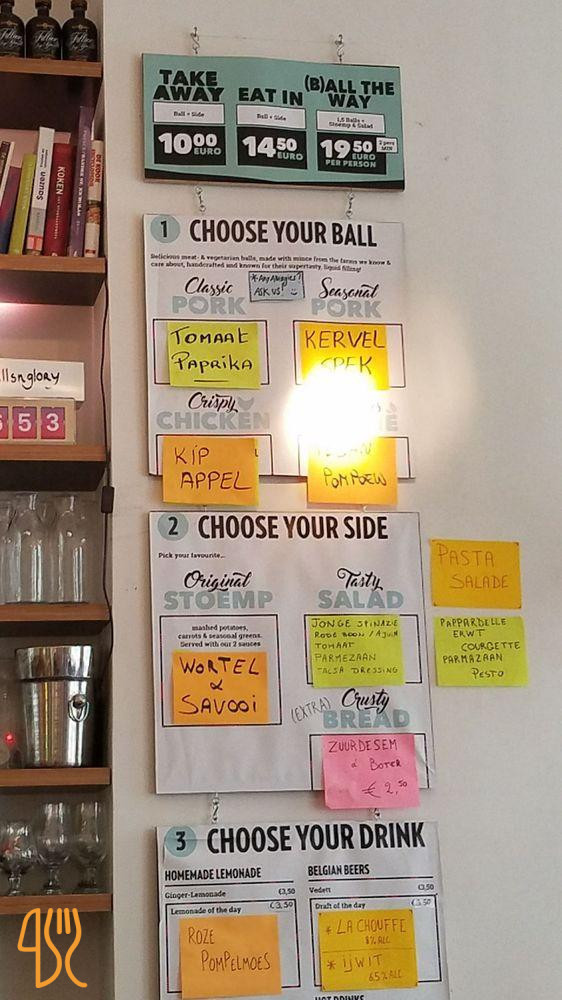 TAKE AWAY
Ball + Side
10⁰⁰ EURO
EAT IN
Ball + Side
14⁵⁰ EURO
(B)ALL THE WAY
1,5 Balls + Stoemp & Salad
19⁵⁰ EURO PER PERSON
2 pers MIN
1 CHOOSE YOUR BALL
Delicious meat- & vegetarian balls, made with mince from the farms we know &
care about, handcrafted and known for their supertasty, liquid filling!
* Any Allergies?
ASK US!
Classic
PORK
TOMAAT
PAPRIKA
Seasonal
PORK
KERVEL
SPEK
Crispy
CHICKEN
KIP
APPEL
POMPOEN
2 CHOOSE YOUR SIDE
Pick your favourite...
Original
STOEMP
mashed potatoes,
carrots & seasonal greens.
Served with our 2 sauces
WORTEL
&
SAVOOI
Tasty
SALAD
JONGE SPINAZIE
RODE BOON / AJUIN
TOMAAT
PARMEZAAN
SALSA DRESSING
(EXTRA)
Crusty
BREAD
ZUURDESEM
& BOTER
€ 2,50
PASTA
SALADE
PAPPARDELLE
ERWT
COURGETTE
PARMAZAAN
PESTO
3 CHOOSE YOUR DRINK
HOMEMADE LEMONADE
Ginger-Lemonade €3,50
Lemonade of the day €3,50
ROZE
POMPELMOES
BELGIAN BEERS
Vedett €3,50
Draft of the day €3,50
* LA CHOUFFE
8% ALC
* IJWIT
6.5% ALC
HOT DRINKS
llsnglory
653
KOKEN